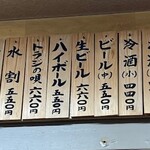 冷酒(小) 四四〇円
ビール(中) 五五〇円
生ビール 六六〇円
ハイボール 五五〇円
トラジの唄 六六〇円
水割 五五〇円